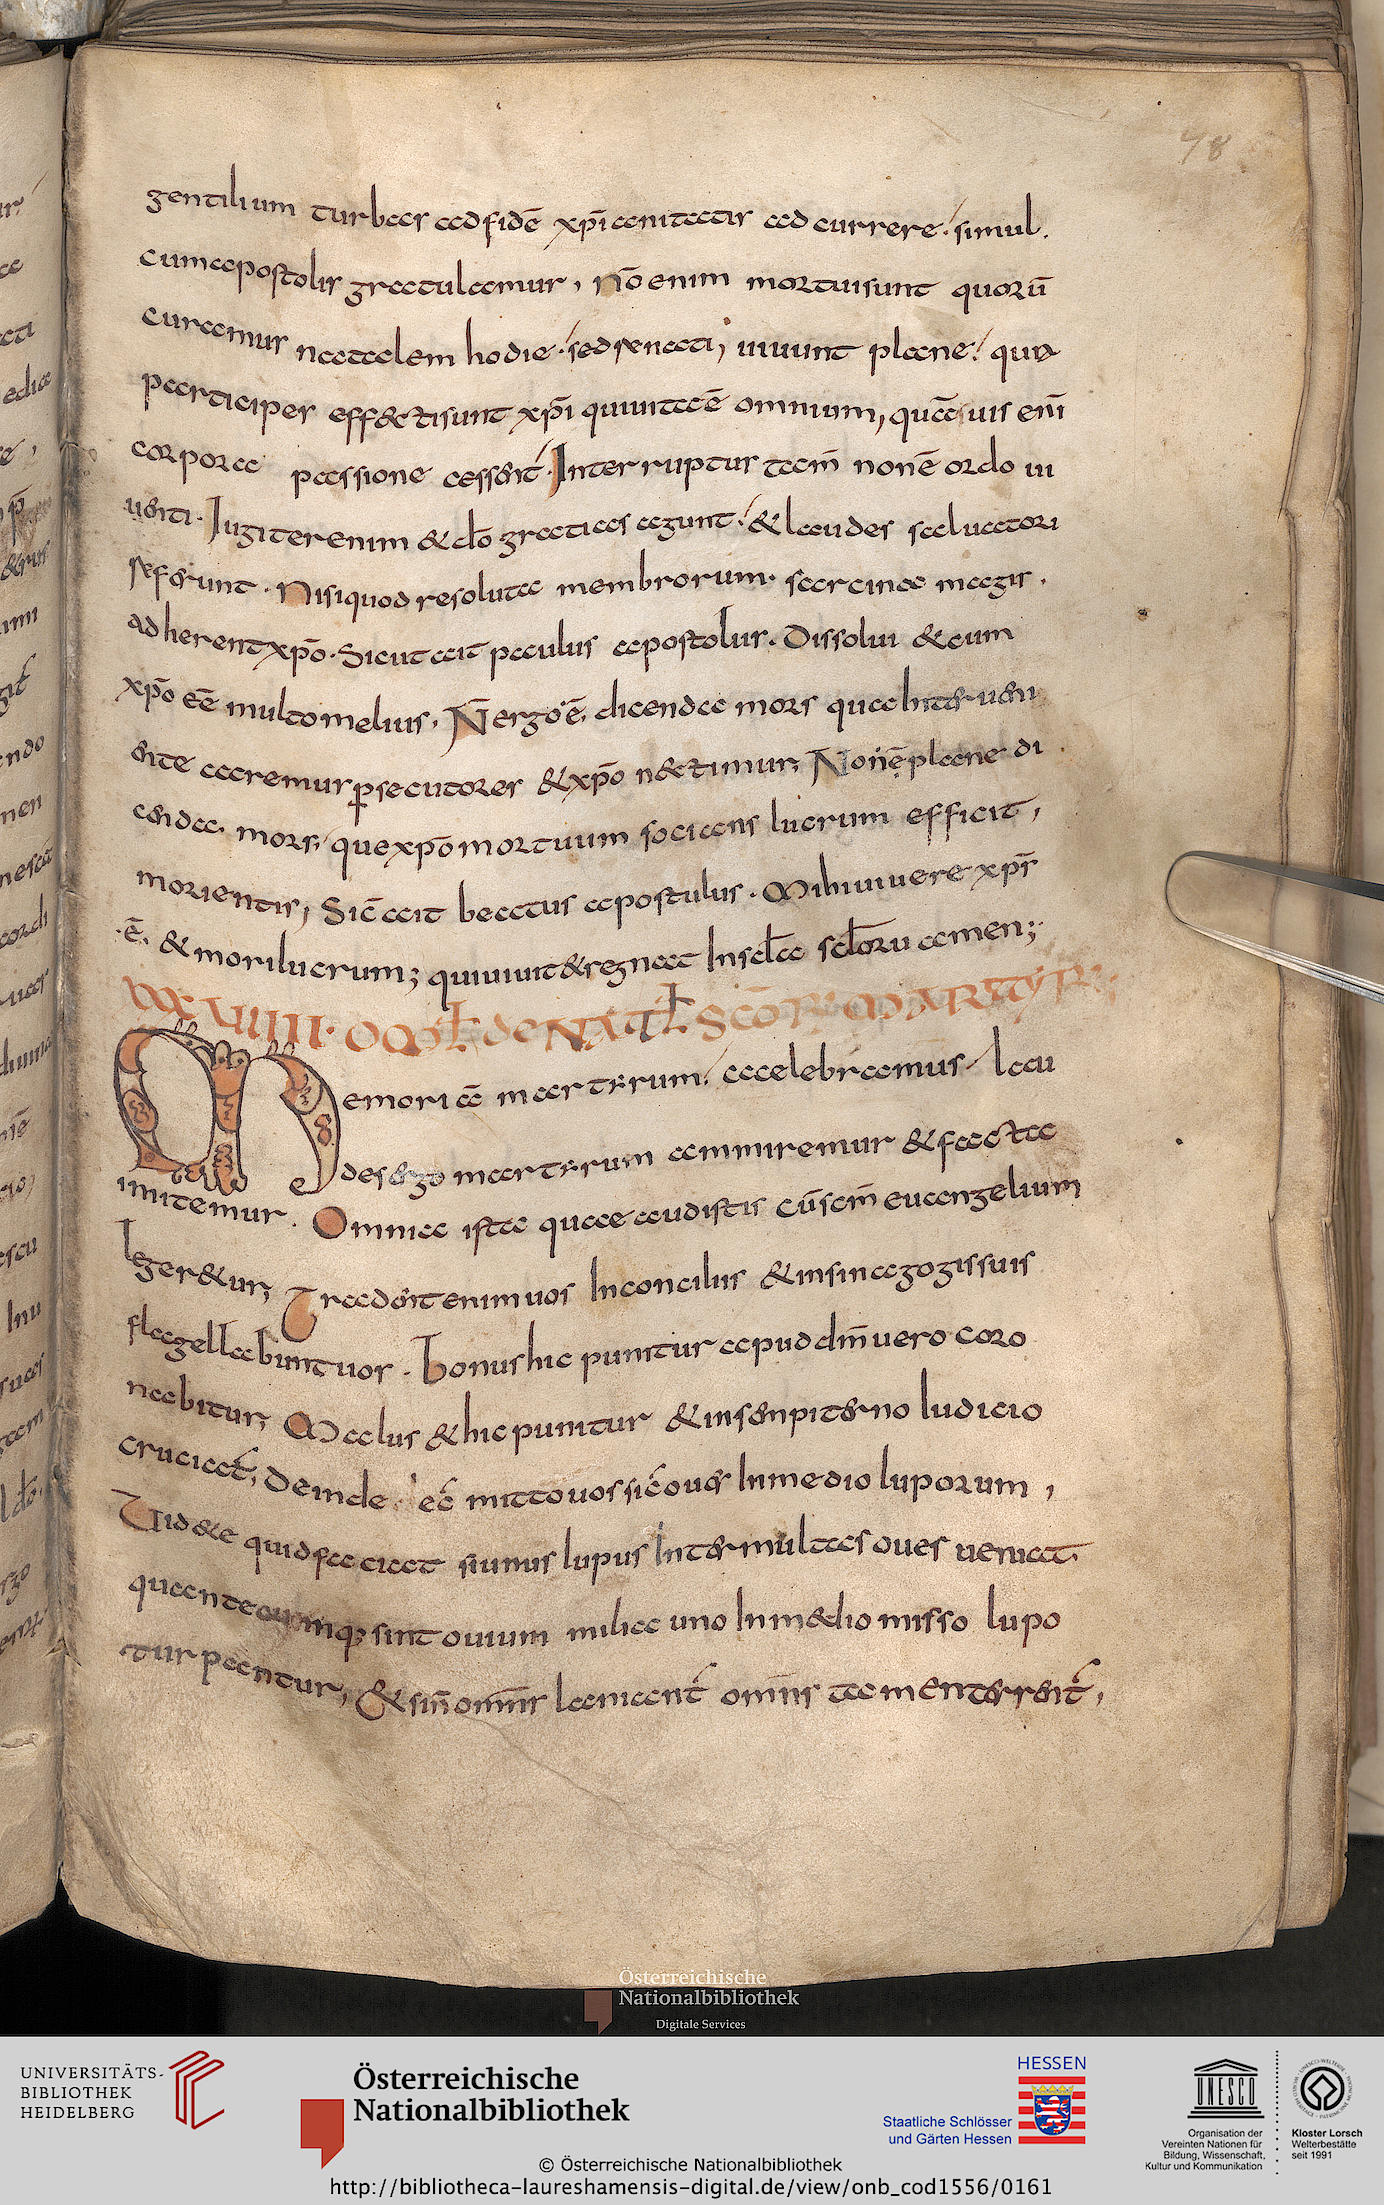 78
gentilium turbas ad fidē xp̄i ani tatis ad currere. simul.
cum apostolis gratulamur, nō enim mortui sunt quorū
curamur natalem hodie. sed renati, uiuunt plane. quia
participes effecti sunt xp̄i qui uita ē omnium, quāuis eni̅
corpora passione cessent. Interruptus tam̅ non ē ordo ui
uenti. Iugiter enim & do̅ gratias agunt. & laudes saluatori
referunt. Nisi quod resoluta membrorum. sarcina magis.
adherent xp̄o. Sicut ait paulus apostolus. Dissolui & cum
xp̄o eē multo melius. N̄ ergo ē. dicenda mors qua Interueni
ente caremur ꝑsecutores & xp̄o nectimur, Non ē plane di
cenda. mors, que xp̄o mortuum socians lucrum efficit,
morientis, Sic̅ ait beatus apostulus. Mihi uiuere xp̄s
.ē. & mori lucrum; qui uiuit & regnat In scl̅a scl̅oru amen;
XXXVIIII. OMl̅ de NATl̅ SCŌR MARTYR
Memoriā martẏrum. accelebramus lau
des ergo martẏrum ammiremur & facta
imitemur. Omnia ista quae audistis cū scm̅ euangelium
legeretur, Tradent enim uos In conciliis & in sinagogis suis
flagellabunt uos. bonus hic punitur apud dm̅ uero coro
nabitur, Malus & hic punitur & in senpiterno Iudicio
cruciat̅, deinde. ec̅ mitto uos sic̅ oues In medio luporum,
Videte quid faciat si unus lupus Inter multas oues ueniat.
quantecumq; sint ouium milia uno In medio misso lupo
turpantur, & si n̅ omn̅s laniant̅ omn̅s tamen terrent̅,
Österreichische
Nationalbibliothek
Digitale Services
UNIVERSITÄTS-
BIBLIOTHEK
HEIDELBERG
Österreichische
Nationalbibliothek
HESSEN
Staatliche Schlösser
und Gärten Hessen
UNESCO
Organisation der
Vereinten Nationen für
Bildung, Wissenschaft,
Kultur und Kommunikation
Kloster Lorsch
Welterbestätte
seit 1991
© Österreichische Nationalbibliothek
http://bibliotheca-laureshamensis-digital.de/view/onb_cod1556/0161